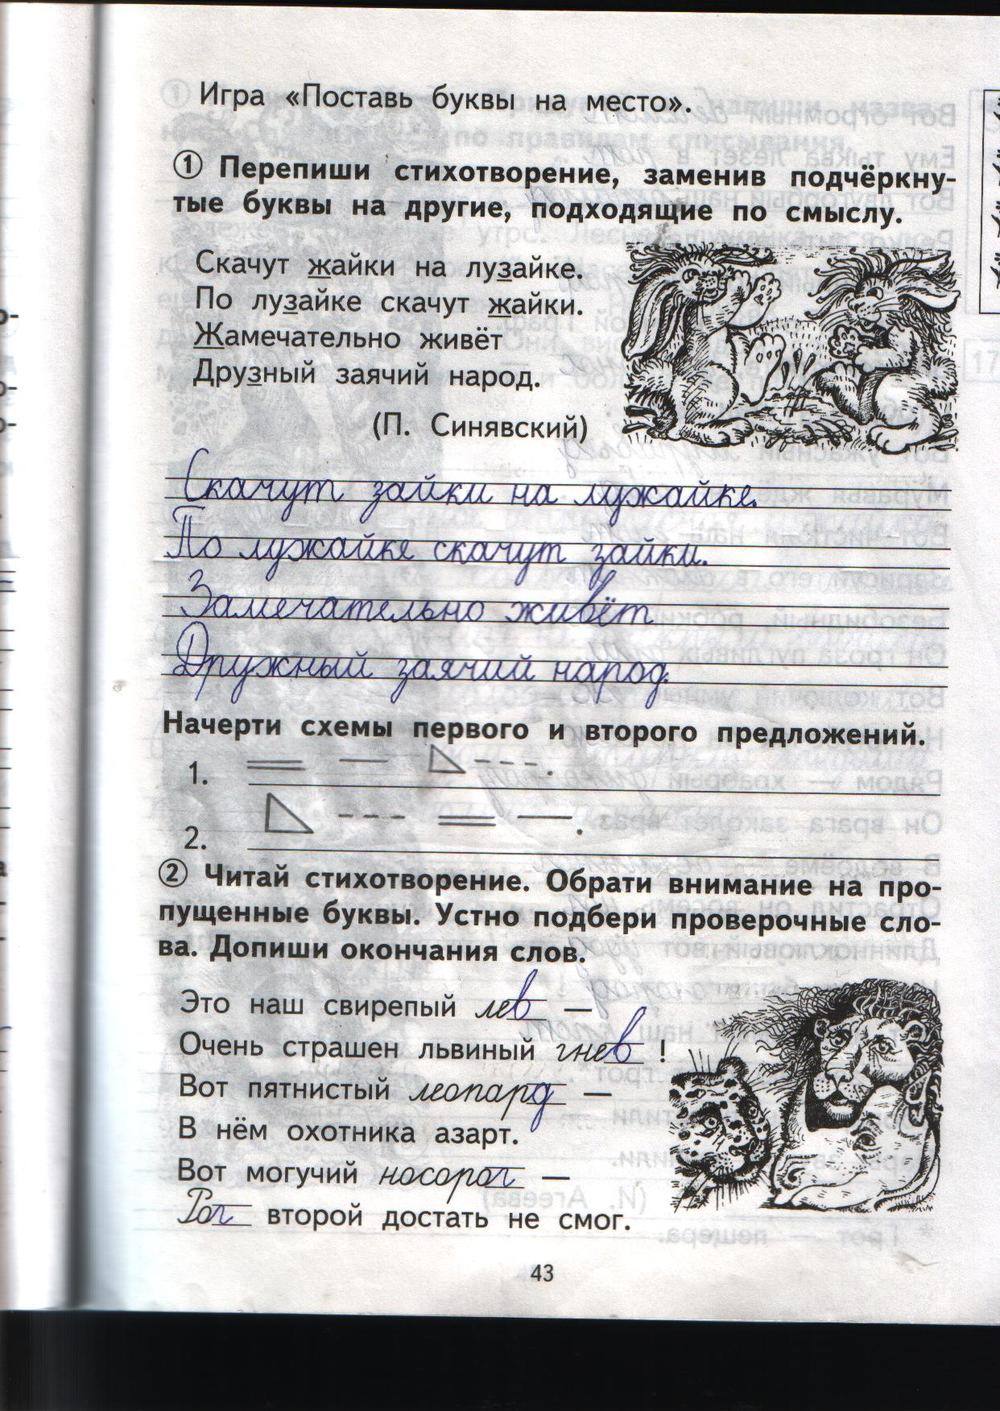 Игра «Поставь буквы на место».
① Перепиши стихотворение, заменив подчёркну-
тые буквы на другие, подходящие по смыслу.
Скачут жайки на лузайке.
По лузайке скачут жайки.
Жамечательно живёт
Друзный заячий народ.
(П. Синявский)
Скачут зайки на лужайке.
По лужайке скачут зайки.
Замечательно живёт
Дружный заячий народ.
Начерти схемы первого и второго предложений.
1.
2.
② Читай стихотворение. Обрати внимание на про-
пущенные буквы. Устно подбери проверочные сло-
ва. Допиши окончания слов.
Это наш свирепый лев —
Очень страшен львиный гнев !
Вот пятнистый леопард —
В нём охотника азарт.
Вот могучий носорог —
Рог второй достать не смог.
43
17